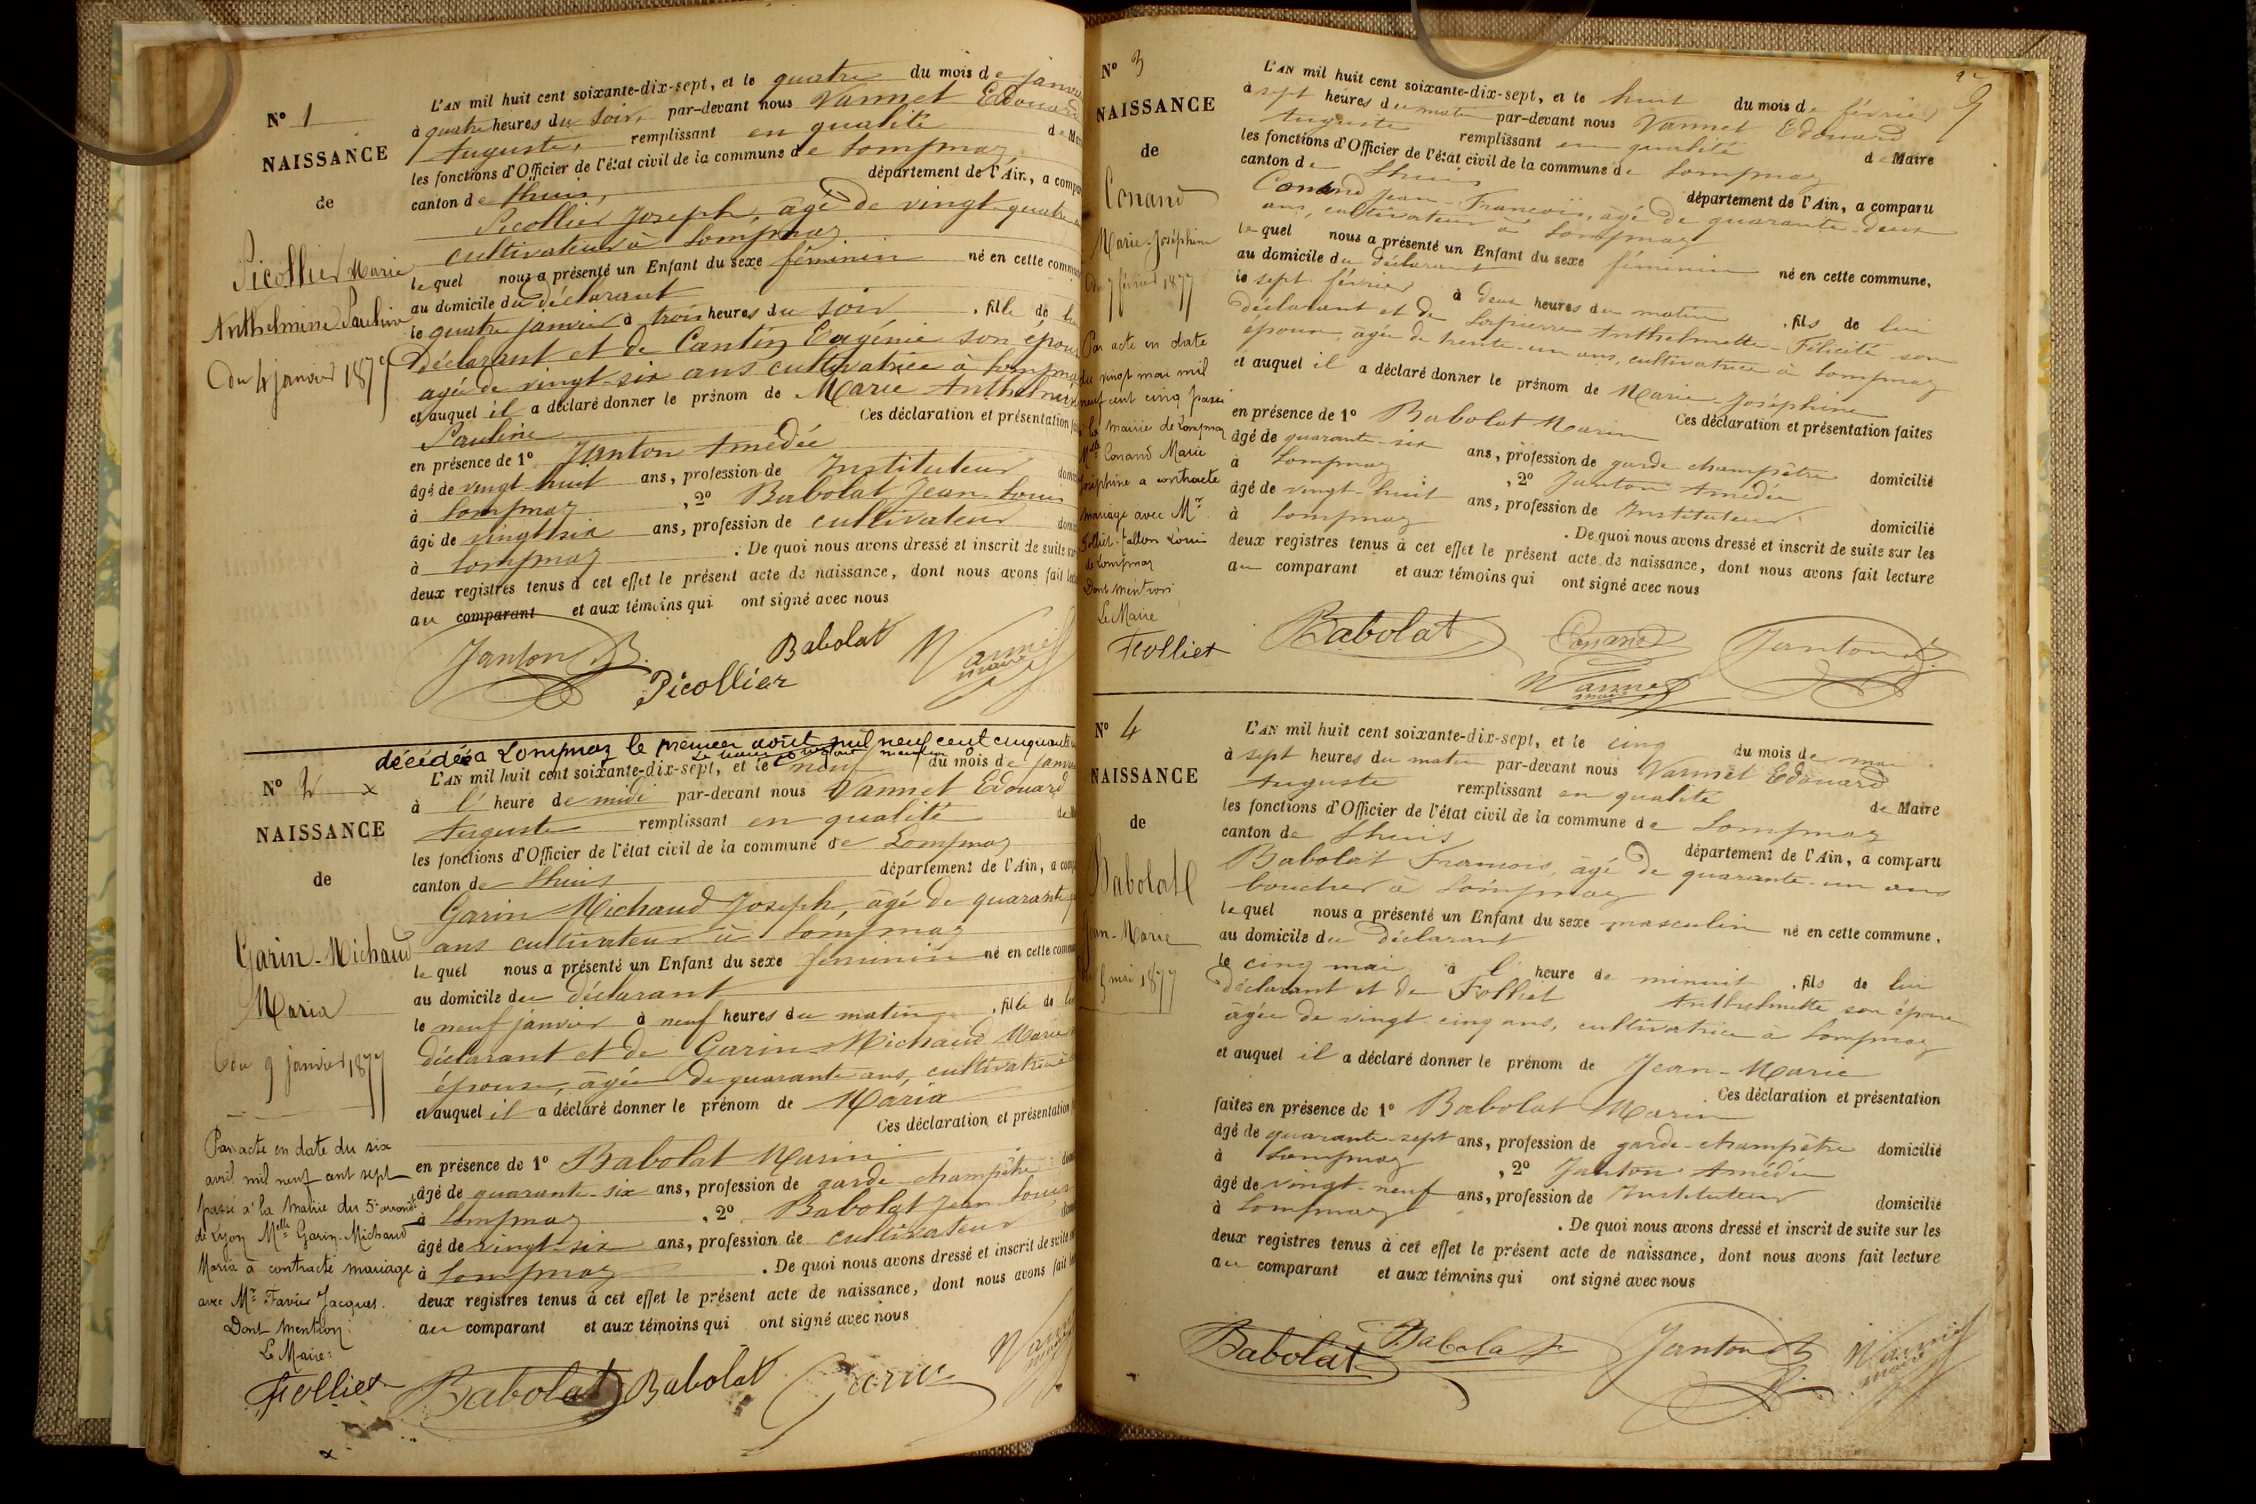 N° 1
NAISSANCE
de
Picollier Marie
Anthelmine Pauline
du 4 janvier 1877
L'AN mil huit cent soixante-dix-sept, et le quatre du mois de janvier
à quatre heures du soir, par-devant nous Vannet Edouard
Auguste, remplissant en qualité de
les fonctions d'Officier de l'état civil de la commune de Lompnaz
canton de Lhuis, département de l'Ain, a
Picollier Joseph, âgé de vingt-quatre
cultivateur à Lompnaz
le quel nous a présenté un Enfant du sexe féminin né en cette
au domicile du déclarant
le quatre janvier à trois heures du soir, fille de
déclarant et de Cantin Eugénie son
agée de vingt-six ans cultivatrice à
et auquel il a déclaré donner le prénom de Marie
Pauline Ces déclaration et présentation
en présence de 1° Janton Amédée
âgé de vingt huit ans, profession de Instituteur
à Lompnaz, 2° Babolat Jean-Louis
âgé de vingt six ans, profession de cultivateur
à Lompnaz. De quoi nous avons dressé et inscrit de suite
deux registres tenus à cet effet le présent acte de naissance, dont nous avons fait
au comparant et aux témoins qui ont signé avec nous
Janton Babolat Vannet
maire
Picollier
décédée à Lompnaz le premier août mil neuf cent
N° 2 x
NAISSANCE
de
Garin-Michaud
Maria
du 9 janvier 1877
L'AN mil huit cent soixante-dix-sept, et le neuf du mois de
à l' heure de midi par-devant nous Vannet Edouard
Auguste remplissant en qualité
les fonctions d'Officier de l'état civil de la commune de Lompnaz
canton de Lhuis département de l'Ain, a
Garin Michaud Joseph, âgé de quarante
ans cultivateur à Lompnaz
le quel nous a présenté un Enfant du sexe féminin né en cette
au domicile du déclarant
le neuf janvier à neuf heures du matin, fille de
déclarant et de Garin-Michaud Marie
épouse, âgée de quarante ans, cultivatrice à
et auquel il a déclaré donner le prénom de Maria
Ces déclaration et présentation
en présence de 1° Babolat Marin
âgé de quarante-six ans, profession de garde-champêtre
à Lompnaz, 2° Babolat Jean Louis
âgé de vingt-six ans, profession de cultivateur
à Lompnaz. De quoi nous avons dressé et inscrit de suite
deux registres tenus à cet effet le présent acte de naissance, dont nous avons fait
au comparant et aux témoins qui ont signé avec nous
Par acte en date du six
avril mil neuf cent sept
passé à la Mairie du 5e arrondt
de Lyon Melle Garin-Michaud
Maria a contracté mariage
avec Mr Favier Jacques.
Dont mention:
Le Maire:
Folliet Babolat Babolat Garin
x
N° 3
NAISSANCE
de
Conand
Marie-Joséphine
du 7 février 1877
Par acte en date
du vingt mai mil
neuf cent cinq passé
à la mairie de Lompnaz
Conand Marie
Joséphine a contracté
mariage avec Mr
Folliet-Fallon Louis
de Lompnaz
Dont mention
Le Maire
Folliet
L'AN mil huit cent soixante-dix-sept, et le huit du mois de février
à sept heures du matin par-devant nous Vannet Edouard
Auguste remplissant en qualité de Maire
les fonctions d'Officier de l'état civil de la commune de Lompnaz
canton de Lhuis département de l'Ain, a comparu
Conand Jean-François, âgé de quarante-deux
ans, cultivateur à Lompnaz
le quel nous a présenté un Enfant du sexe féminin né en cette commune,
au domicile du déclarant
le sept février à deux heures du matin, fils de lui
déclarant et de Anthelmette-Félicité son
épouse, âgée de trente-un ans, cultivatrice à Lompnaz
et auquel il a déclaré donner le prénom de Marie-Joséphine
Ces déclaration et présentation faites
en présence de 1° Babolat Marin
âgé de quarante-six ans, profession de garde-champêtre domicilié
à Lompnaz, 2° Janton Amédée
âgé de vingt-huit ans, profession de Instituteur domicilié
à Lompnaz. De quoi nous avons dressé et inscrit de suite sur les
deux registres tenus à cet effet le présent acte de naissance, dont nous avons fait lecture
au comparant et aux témoins qui ont signé avec nous
Babolat Conand Janton
Vannet
maire
N° 4
NAISSANCE
de
Babolat
Jean-Marie
5 mai 1877
L'AN mil huit cent soixante-dix-sept, et le cinq du mois de mai
à sept heures du matin par-devant nous Vannet Edouard
Auguste remplissant en qualité de Maire
les fonctions d'Officier de l'état civil de la commune de Lompnaz
canton de Lhuis département de l'Ain, a comparu
Babolat François, âgé de quarante-un ans
boucher à Lompnaz
le quel nous a présenté un Enfant du sexe masculin né en cette commune,
au domicile du déclarant
le cinq mai à l' heure de minuit, fils de lui
déclarant et de Folliet Anthelmette son épouse
âgée de vingt cinq ans, cultivatrice à Lompnaz
et auquel il a déclaré donner le prénom de Jean-Marie
Ces déclaration et présentation
faites en présence de 1° Babolat Marin
âgé de quarante-sept ans, profession de garde-champêtre domicilié
à Lompnaz, 2° Janton Amédée
âgé de vingt-neuf ans, profession de Instituteur domicilié
à Lompnaz. De quoi nous avons dressé et inscrit de suite sur les
deux registres tenus à cet effet le présent acte de naissance, dont nous avons fait lecture
au comparant et aux témoins qui ont signé avec nous
Babolat Babolat Janton Vannet
maire